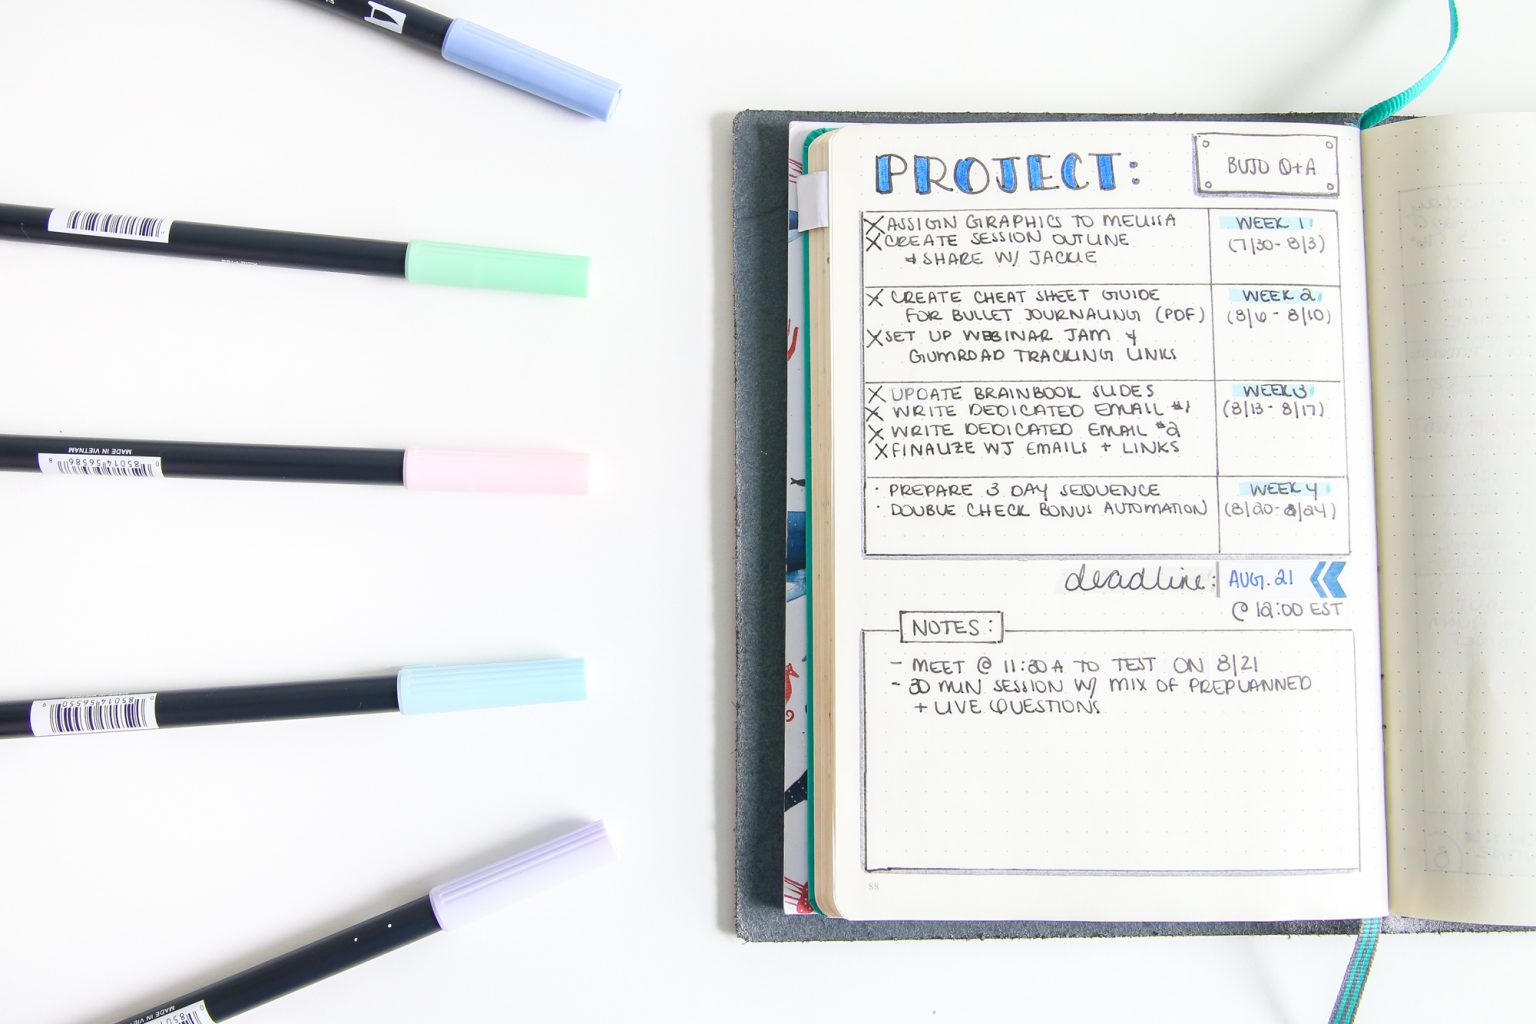 PROJECT:
BUJO Q+A
X ASSIGN GRAPHICS TO MELISSA
X CREATE SESSION OUTLINE
& SHARE W/ JACKIE
WEEK 1
(7/30 - 8/3)
X CREATE CHEAT SHEET GUIDE
FOR BULLET JOURNALING (PDF)
X SET UP WEBINAR JAM &
GUMROAD TRACKING LINKS
WEEK 2
(8/6 - 8/10)
X UPDATE BRAINBOOK SLIDES
X WRITE DEDICATED EMAIL #1
X WRITE DEDICATED EMAIL #2
X FINALIZE WJ EMAILS + LINKS
WEEK 3
(8/13 - 8/17)
· PREPARE 3 DAY SEQUENCE
· DOUBLE CHECK BONUS AUTOMATION
WEEK 4
(8/20 - 8/24)
deadline: AUG. 21
@ 12:00 EST
NOTES:
- MEET @ 11:30 A TO TEST ON 8/21
- 30 MIN SESSION W/ MIX OF PREPLANNED
+ LIVE QUESTIONS
88
MADE IN VIETNAM
0 85014 56586 8
0 85014 56550 9
MADE IN VIETNAM